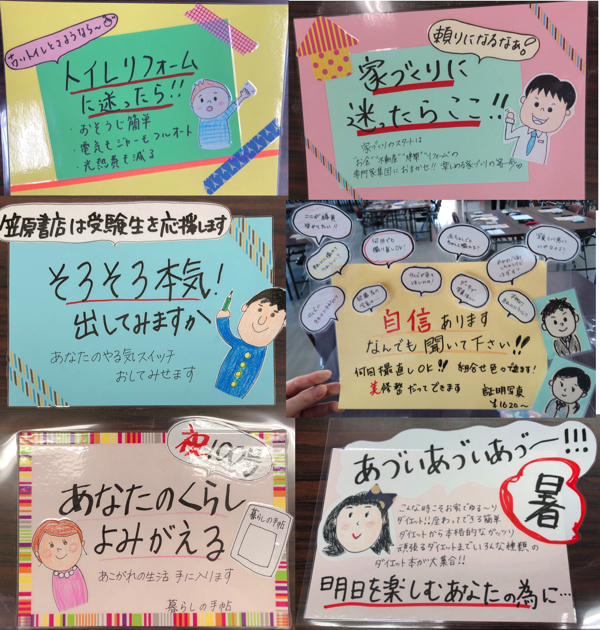 古いトイレとさようなら〜
トイレリフォーム
に迷ったら!!
・おそうじ簡単
・電気もジャーもフルオート
・光熱費も減る
頼りになるなぁ
家づくりに
迷ったらここ!!
家づくりのスタートは
"お金""不動産""建築""リフォーム"の
専門家集団におまかせ!! 楽しめる家づくりの第一歩
笠原書店は受験生を応援します
そろそろ本気!
出してみますか
あなたのやる気スイッチ
おしてみせます
何回でも
撮り直しOK!
自信あります
なんでも聞いて下さい!!
何回撮直しOK!! 組合せ色々有ます!
美修整だってできます
証明写真
¥1620〜
祝100号
あなたのくらし
よみがえる
あこがれの生活 手に入ります
暮らしの手帖
暮らしの手帖
あづいあづいあづ〜!!!
暑
こんな時こそお家でゆる〜り
ダイエット!!座わってできる簡単
ダイエットから本格的なガッツリ
頑張るダイエットまでいろんな種類の
ダイエット本が大集合!!
明日を楽しむあなたの為に…